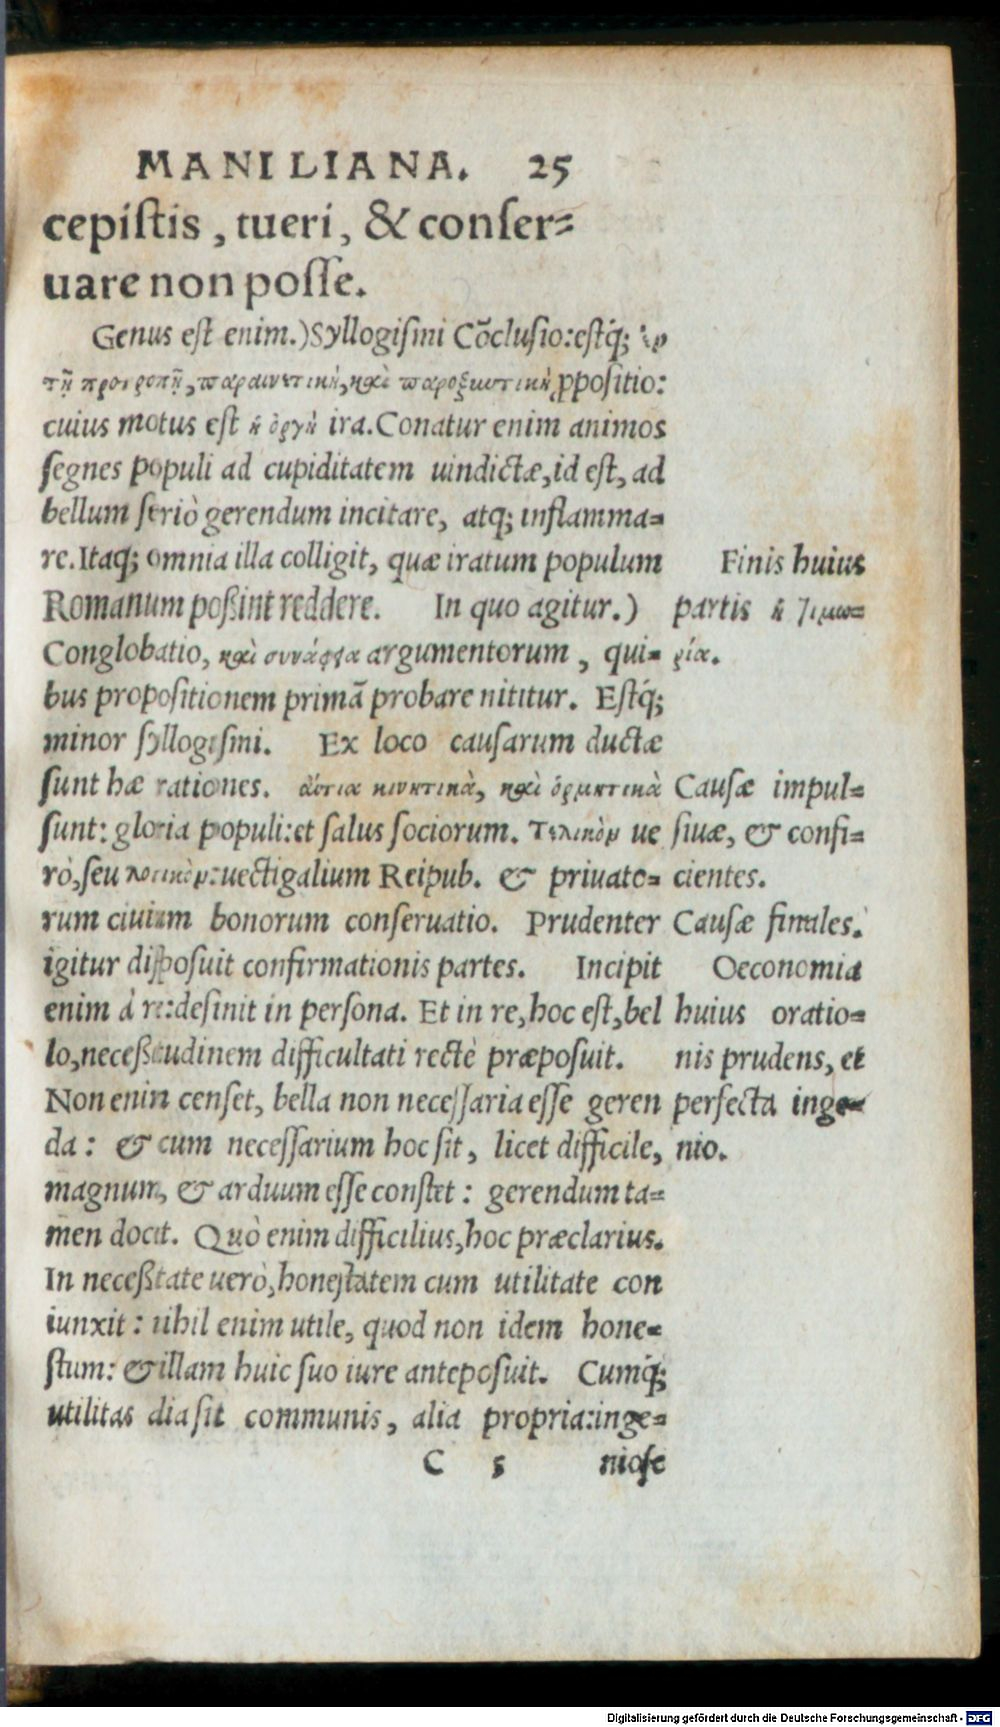 MANILIANA. 25
cepiſtis, tueri, & conſer⸗
uare non poſſe.
Genus eſt enim.) Syllogiſmi Cōcluſio: eſtq́;
τῇ προτροπῇ, παραινετικὴ, καὶ παροξυντικὴ ꝓpoſitio:
cuius motus eſt ἡ ὀργὴ ira. Conatur enim animos
ſegnes populi ad cupiditatem uindictæ, id eſt, ad
bellum ſeriò gerendum incitare, atq; inflamma⸗
re. Itaq; omnia illa colligit, quæ iratum populum
Romanum poßint reddere. In quo agitur.)
Conglobatio, καὶ συνάφεια argumentorum, qui⸗
bus propoſitionem primā probare nititur. Eſtq́;
minor ſyllogiſmi. Ex loco cauſarum ductæ
ſunt hæ rationes. αἴτια κινητικὰ, καὶ ὁρμητικὰ
ſunt: gloria populi: et ſalus ſociorum. Τελικὸν ue
rò, ſeu: uectigalium Reipub. & priuato⸗
rum ciuium bonorum conſeruatio. Prudenter
igitur diſpoſuit confirmationis partes. Incipit
enim à re: deſinit in perſona. Et in re, hoc eſt, bel
lo, neceßitudinem difficultati rectè præpoſuit.
Non enim cenſet, bella non neceſſaria eſſe geren
da: & cum neceſſarium hoc ſit, licet difficile,
magnum, & arduum eſſe conſtet: gerendum ta⸗
men docet. Quò enim difficilius, hoc præclarius.
In neceßitate uerò, honeſtatem cum utilitate con
iunxit: nihil enim utile, quod non idem hone⸗
ſtum: & illam huic ſuo iure antepoſuit. Cumq́;
utilitas alia ſit communis, alia propria: inge⸗
C 5 nioſe
Finis huius
partis ἡ τιμω⸗
ρία.
Cauſæ impul⸗
ſiuæ, & confi⸗
cientes.
Cauſæ finales.
Oeconomia
huius oratio⸗
nis prudens, et
perfecta inge⸗
nio.
Digitalisierung gefördert durch die Deutsche Forschungsgemeinschaft - DFG